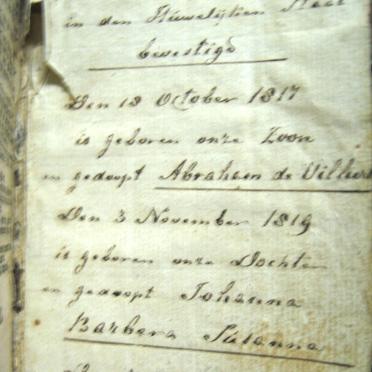 in den Huwelijken Staat
bevestigd
Den 18 October 1817
is geboren onze Zoon
en gedoopt Abraham de Villiers
Den 3 November 1819
is geboren onze Dochter
en gedoopt Johanna
Barbera Susanna